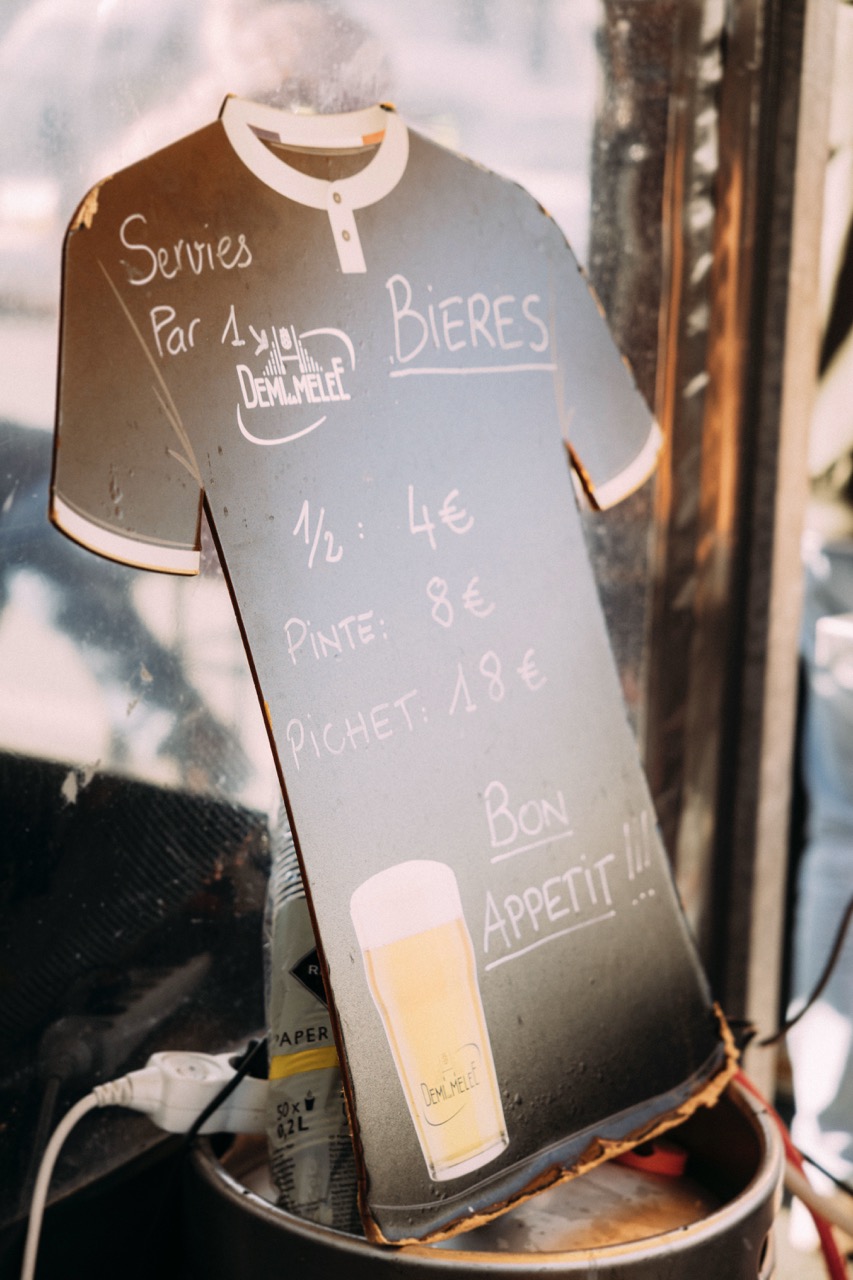 Servies
Par 1
DEMI de MELEE
BIERES
1/2 : 4€
PINTE: 8€
PICHET: 18€
BON
APPETIT !!!
DEMI de MELEE
APER
50 x
0,2 L